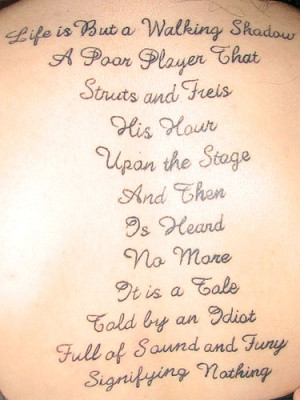 Life is But a Walking Shadow
A Poor Player That
Struts and Frets
His Hour
Upon the Stage
And Then
Is Heard
No More
It is a Tale
Told by an Idiot
Full of Sound and Fury
Signifying Nothing